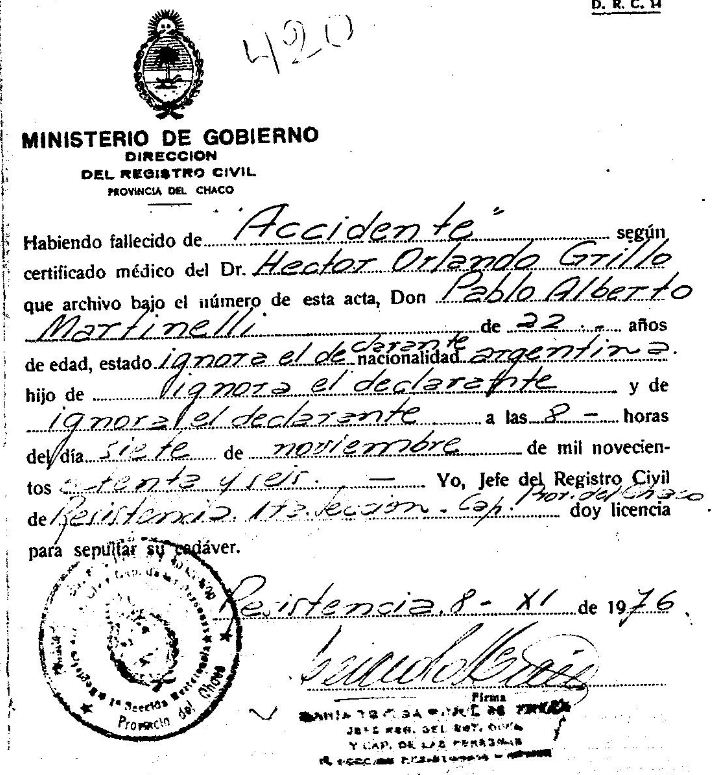 D. R. C. 14
420
MINISTERIO DE GOBIERNO
DIRECCION
DEL REGISTRO CIVIL
PROVINCIA DEL CHACO
Habiendo fallecido de "Accidente" según
certificado médico del Dr. Hector Orlando Grillo
que archivo bajo el número de esta acta, Don Pablo Alberto
Martinelli de 22 años
de edad, estado ignora el declarante nacionalidad argentina.
hijo de ignora el declarante y de
ignora el declarante a las 8 - horas
del día siete de noviembre de mil novecien-
tos setenta y seis. — Yo, Jefe del Registro Civil
de Resistencia. 1ra. Seccion. Cap. Prov. del Chaco doy licencia
para sepultar su cadáver.
Resistencia. 8 - XI de 1976
Firma
JEFE REG. DEL EST. CIVIL
Y CAP. DE LAS PERSONAS
1ª Sección Resistencia
Provincia del Chaco